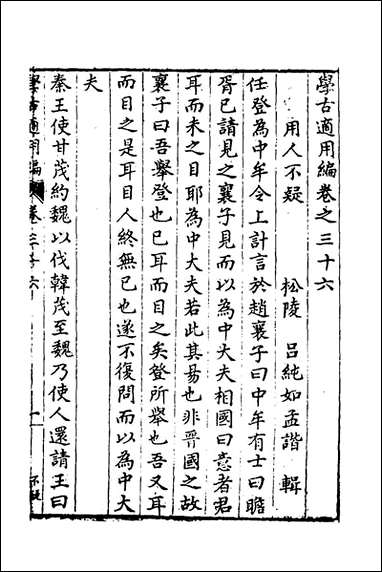 學古適用編卷之三十六
用人不疑　松陵　呂純如孟諧　輯
任登為中牟令上計言於趙襄子曰中牟有士曰瞻
胥已請見之襄子見而以為中大夫相國曰意者君
耳而未之目耶為中大夫若此其易也非晉國之故
襄子曰吾舉登也已耳而目之矣登所舉也吾又耳
而目之是耳目人終無已也遂不復問而以為中大
夫
秦王使甘茂約魏以伐韓茂至魏乃使人還請王曰
學古適用編 卷三十六 一 不疑